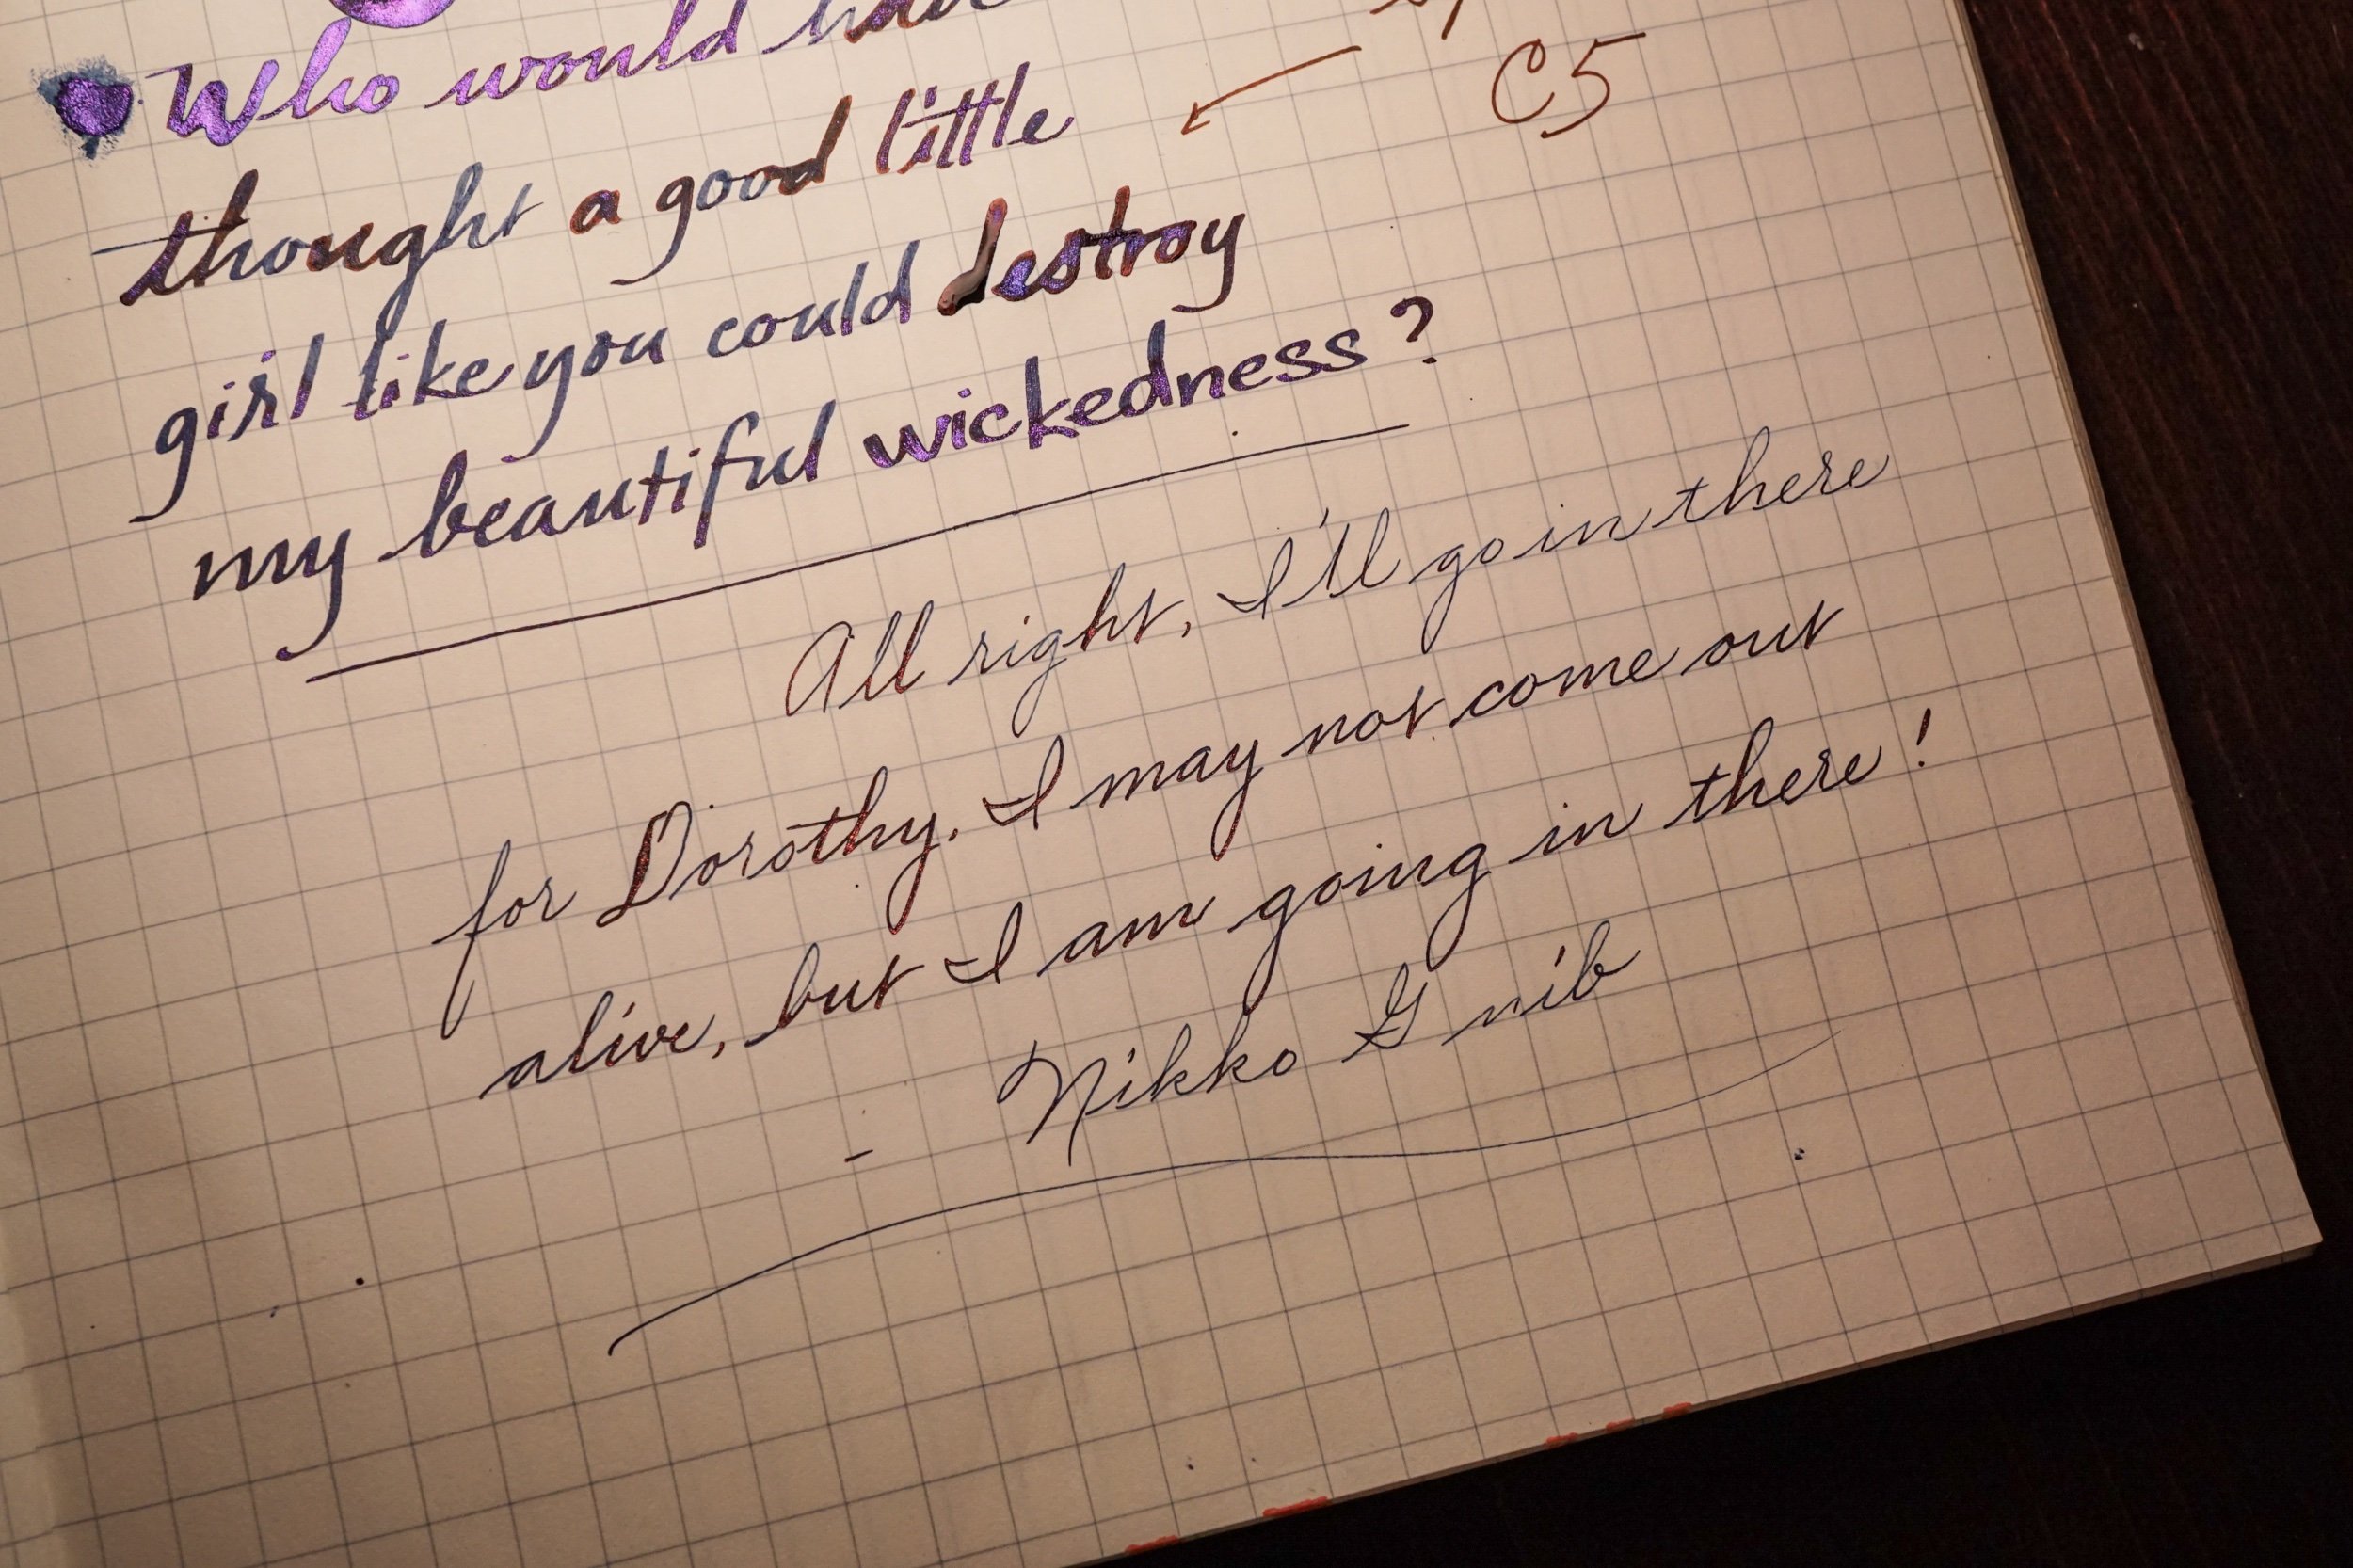 Who would have
C5
thought a good little
girl like you could destroy
my beautiful wickedness?
All right, I'll go in there
for Dorothy. I may not come out
alive, but I am going in there!
- Nikko G nib